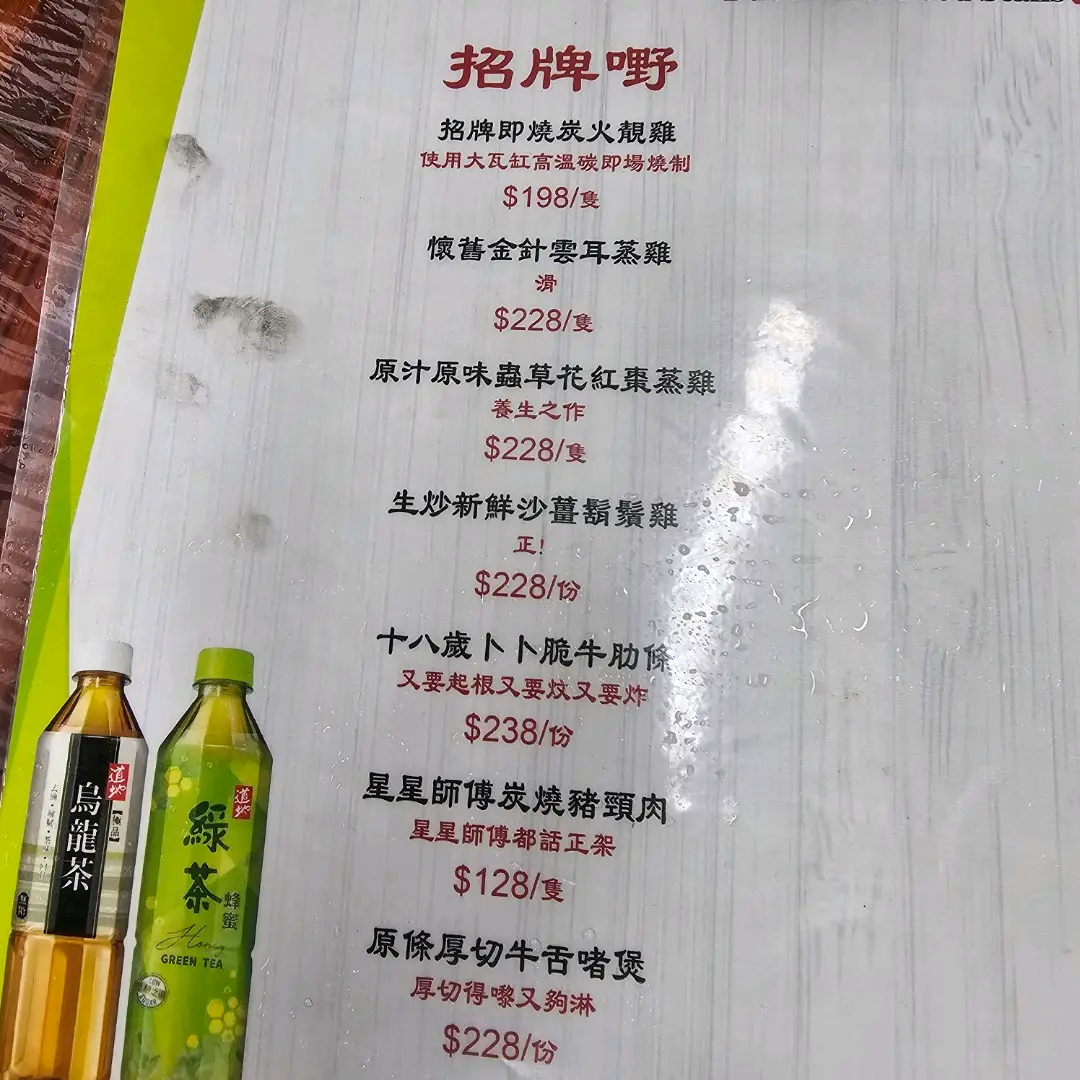 招牌嘢
招牌即燒炭火靚雞
使用大瓦缸高溫碳即場燒制
$198/隻
懷舊金針雲耳蒸雞
滑
$228/隻
原汁原味蟲草花紅棗蒸雞
養生之作
$228/隻
生炒新鮮沙薑鬍鬚雞
正!
$228/份
十八歲卜卜脆牛肋條
又要起根又要炆又要炸
$238/份
星星師傅炭燒豬頸肉
星星師傅都話正架
$128/隻
原條厚切牛舌啫煲
厚切得嚟又夠淋
$228/份
道地
極品
烏龍茶
道地
綠茶
蜂蜜
Honey
GREEN TEA